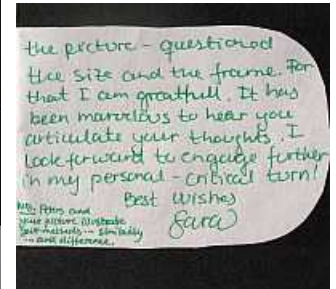 the picture - questioned
the size and the frame. For
that I am greatfull. It has
been marvelous to hear you
articulate your thoughts. I
look forward to engage further
in my personal - critical turn!
Best Wishes
Sara
and
your picture illustrate
similarity
and difference.